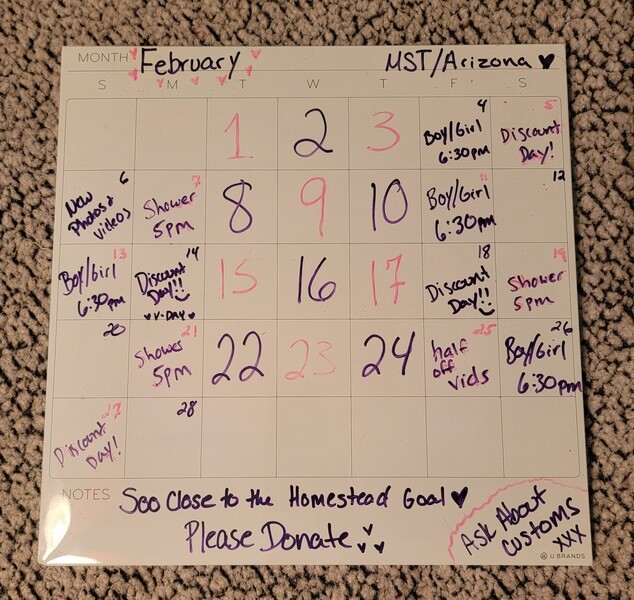 MONTH February MST/Arizona
S M T W T F S
1 2 3 4 Boy/Girl 6:30pm 5 Discount Day!
6 New Photos & Videos 7 Shower 5pm 8 9 10 11 Boy/Girl 6:30pm 12
13 Boy/Girl 6:30pm 14 Discount Day!! V-DAY 15 16 17 18 Discount Day!! 19 Shower 5pm
20 21 Shower 5pm 22 23 24 25 half off vids 26 Boy/Girl 6:30pm
27 Discount Day! 28
NOTES Soo Close to the Homestead Goal
Please Donate
Ask About
Customs
xxx
U BRANDS